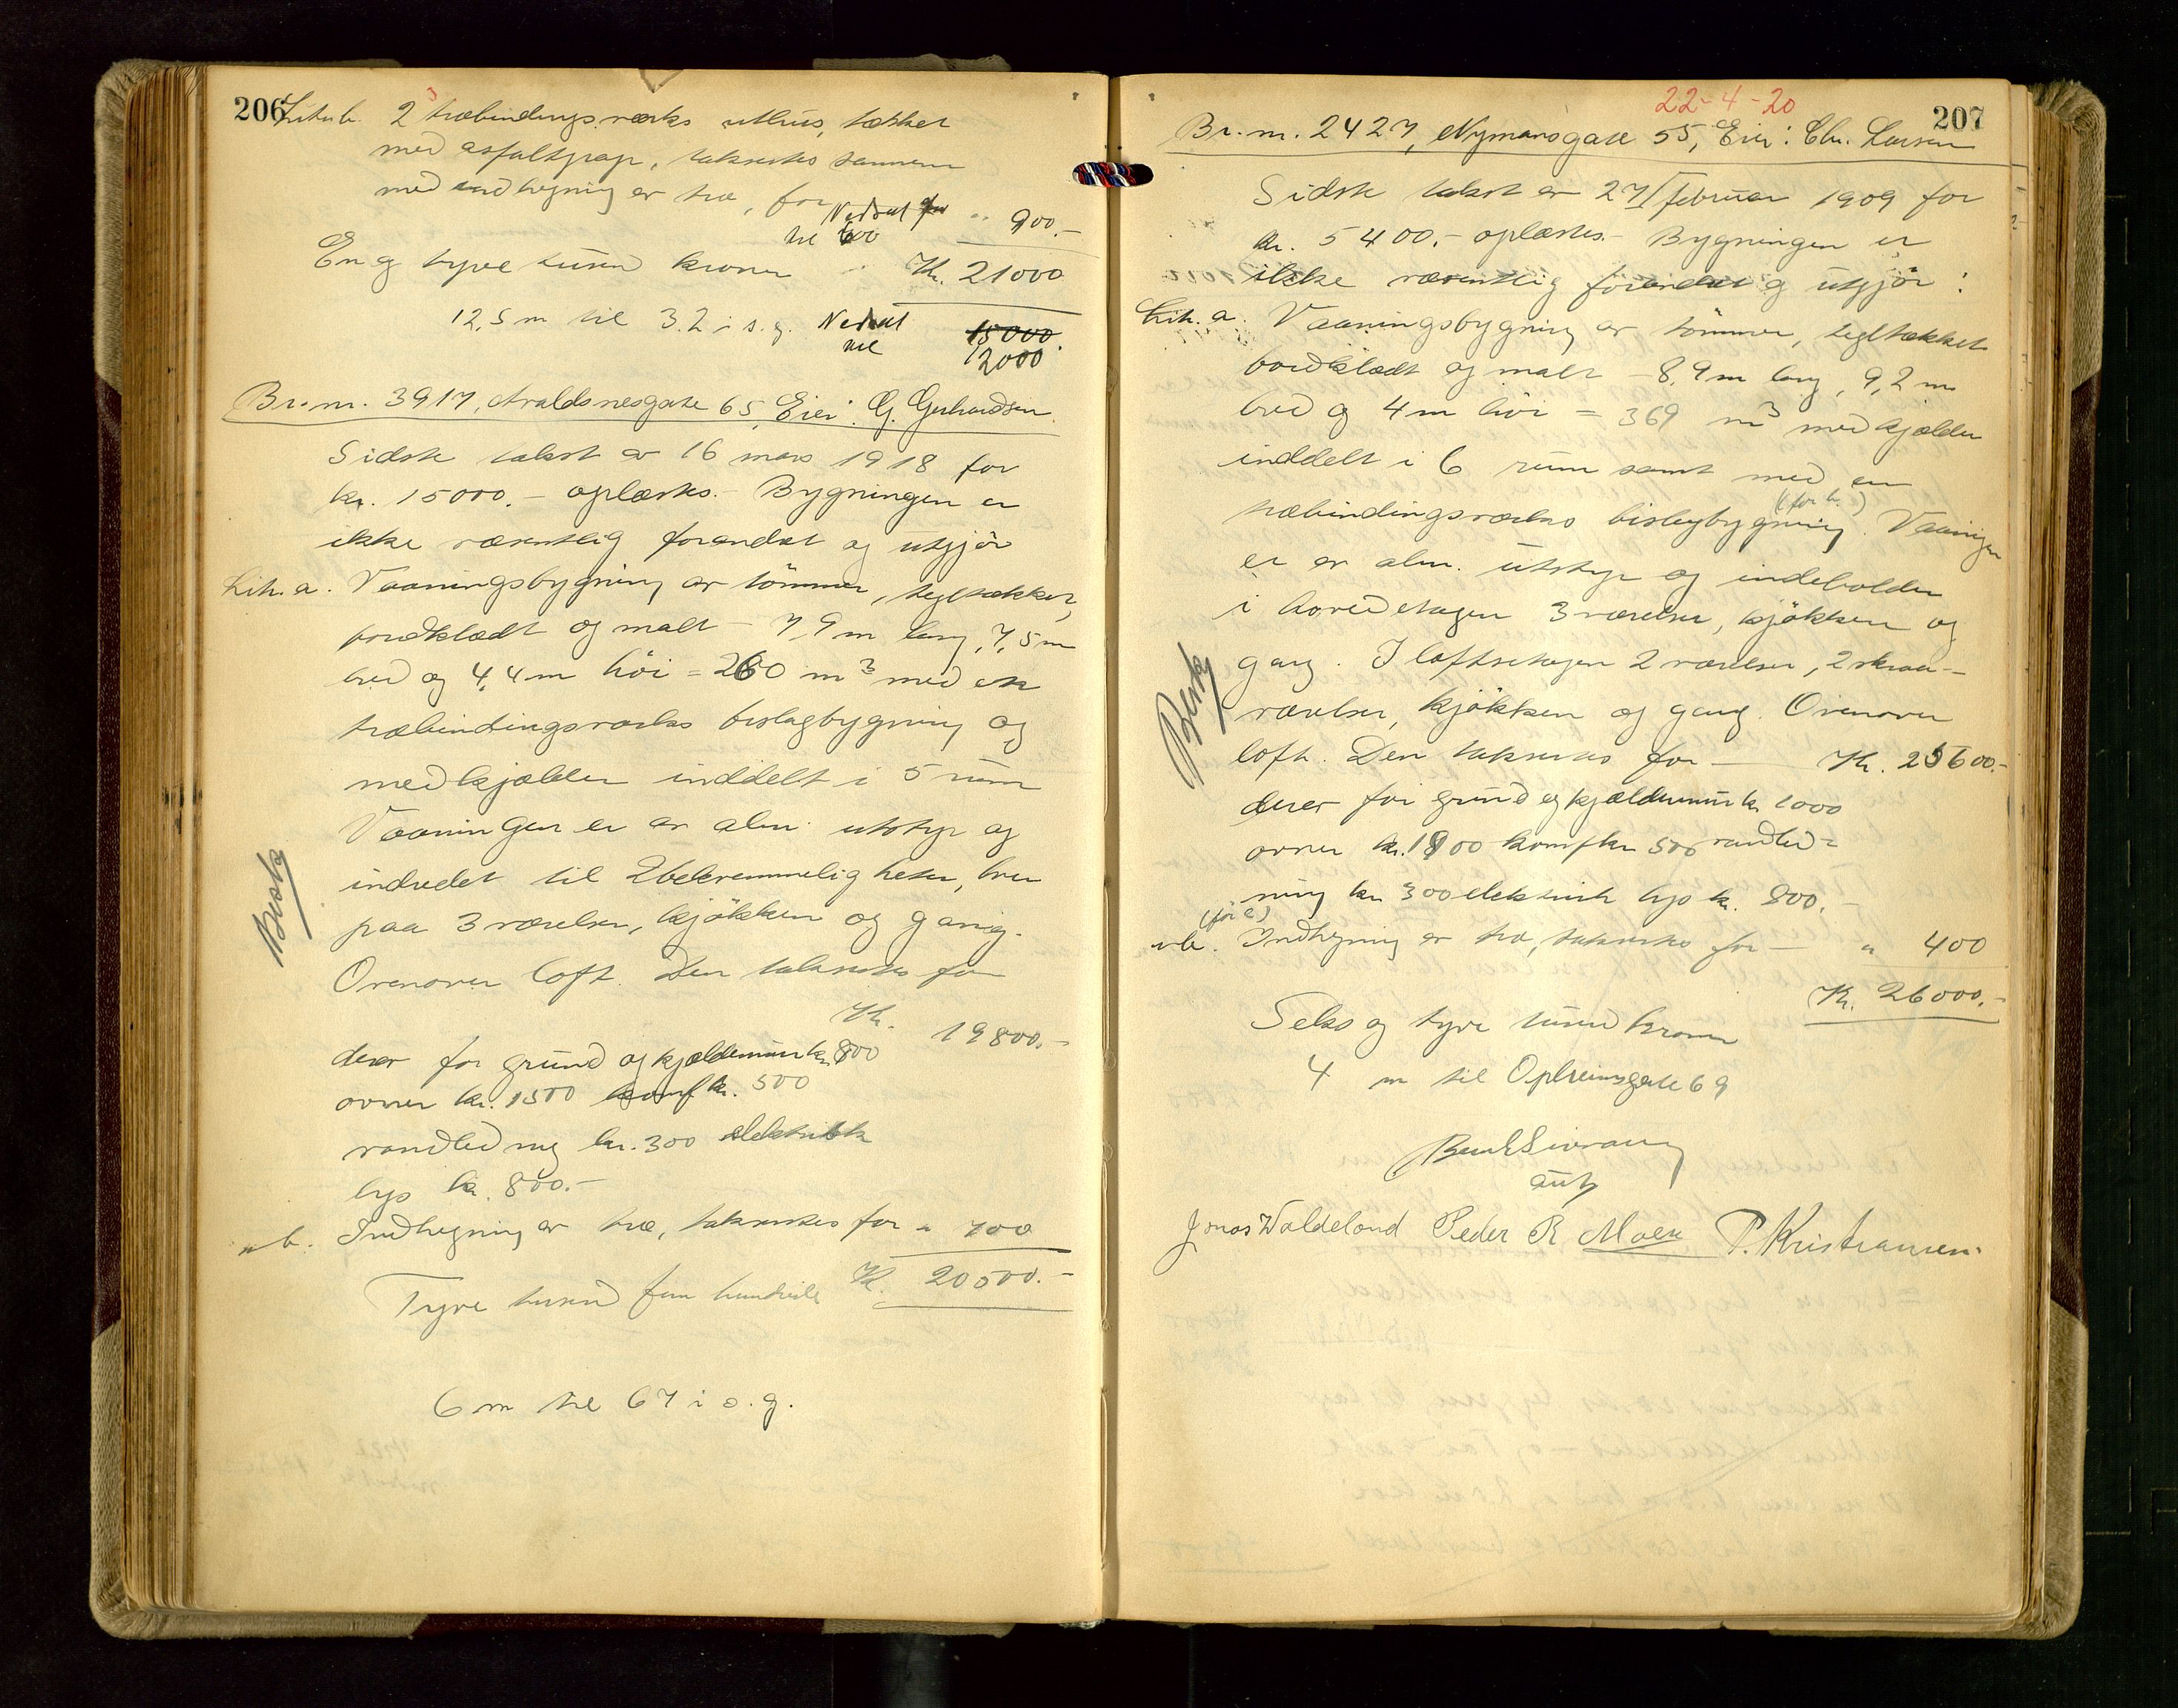 206
Litr. b. 2 træbindingsværks uthus, tækket
med asfaltpap, takseres sammen
med indhegning av træ, for " 900.-
Nedsat for
til 600
En og tyve tusen kroner Kr. 21000
12,5 m til 32 i s. g. Nedsat 15000.
til 12000
Br. nr. 3917, Avaldsnesgate 65, Eier: G. Gerhardsen
Sidste takst av 16 mars 1918 for
kr. 15000.- oplæstes.- Bygningen er
ikke væsentlig forandret og utgjør
Lit. a. Vaaningsbygning av tømmer, tegltækket,
bordklædt og malt - 7,9 m lang, 7,5 m
bred og 4,4 m høi = 260 m³ med en
træbindingsværks bislagbygning og
med kjælder inddelt i 5 rum
Vaaningen er av alm. utstyr og
indredet til 2 bekvemmeligheter, hver
paa 3 værelser, kjøkken og gang.
Besk
Ovenover loft. Den takseres for
Kr. 19800.-
derav for grund og kjældermur kr. 800
ovner kr. 1500 komf kr. 500
vandledning kr. 300 elektrisk
lys kr. 800.-
" b. Indhegning av træ, takseres for " 700
Tyve tusen fem hundrede Kr. 20500.-
6 m til 67 i s. g.
22-4-20
207
Br. nr. 2427, Nymansgate 55, Eier: Chr. Larsen
Sidste takst av 27/februar 1909 for
kr. 5400.- oplæstes.- Bygningen er
ikke væsentlig forandret og utgjør:
Lit. a. Vaaningsbygning av tømmer, tegltækket
bordklædt og malt - 8,9 m lang, 9,2 m
bred og 4 m høi = 369 m³ med kjælder
inddelt i 6 rum samt med en
træbindingsværks bislagbygning (for b.). Vaaningen
er av alm. utstyr og indeholder
i hovedetagen 3 værelser, kjøkken og
gang. I loftsetagen 2 værelser, 2 skraa-
værelser, kjøkken og gang. Ovenover
Besk
loft. Den takseres for - Kr. 25600.-
derav for grund og kjældermur kr 1000
ovner kr. 1800 komf kr 500 vandled-
ning kr 300 elektrisk lys kr. 800.-
(for c)
" b. Indhegning av træ, takseres for - " 400
Kr. 26000.-
Seks og tyve tusen kroner
4 m til Opheimsgate 69
Jonas Waldeland Peder R Moen P. Kristiansen.